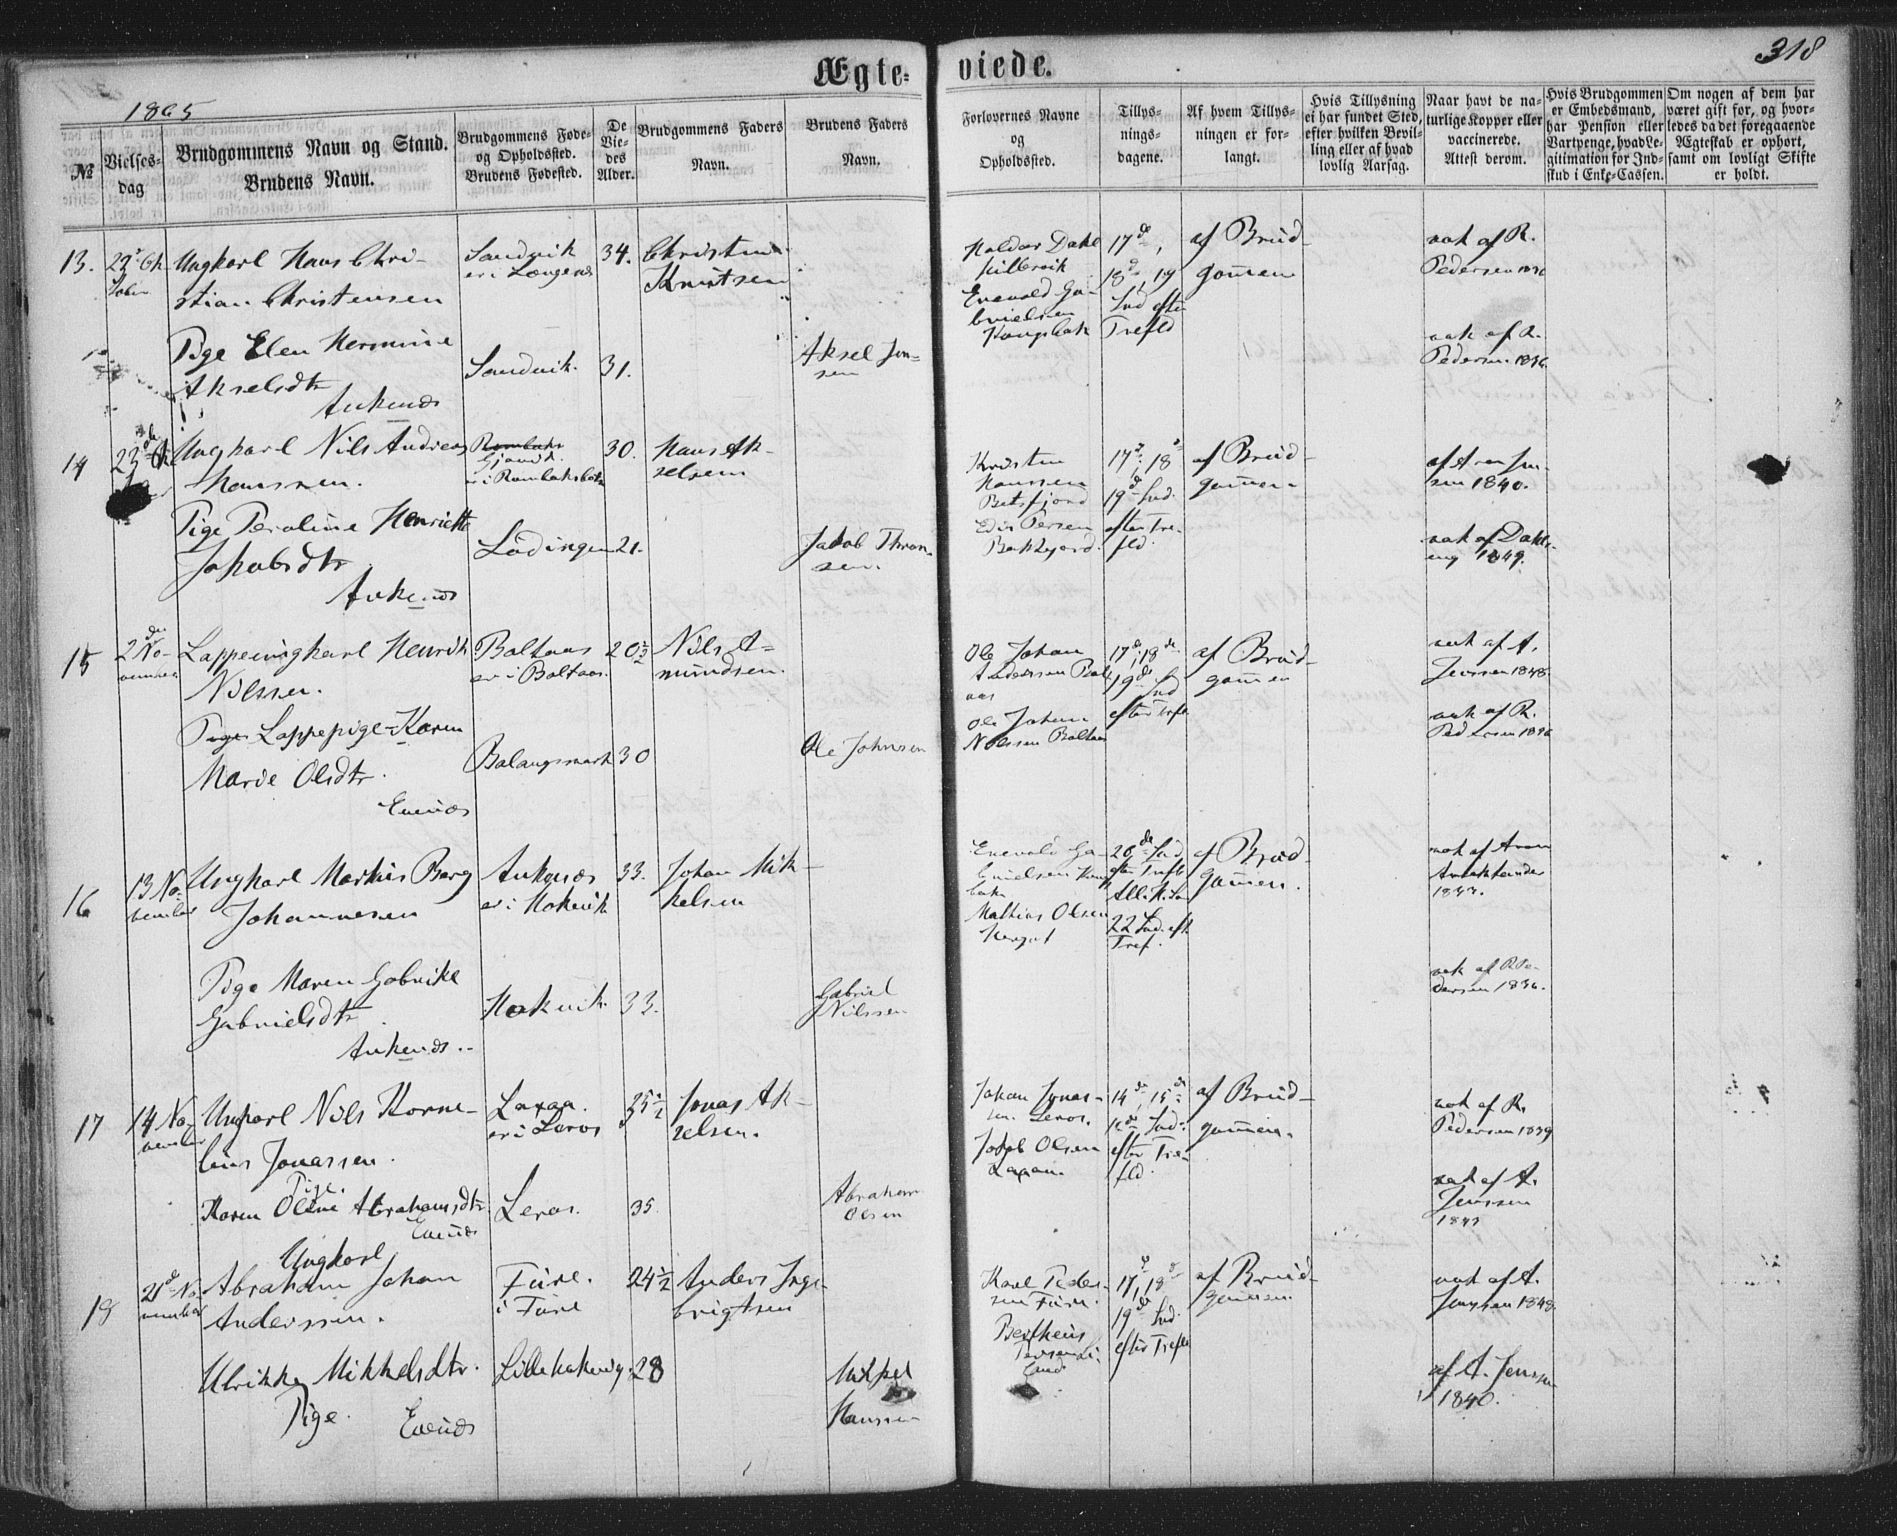 Ægte= viede.
318
1865
№
Vielses-
dag
Brudgommens Navn og Stand.
Brudens Navn.
Brudgommens Føde-
og Opholdssted.
Brudens Fødested.
De
Vie-
des
Alder.
Brudgommens Faders
Navn.
Brudens Faders
Navn.
Forlovernes Navne
og
Opholdssted.
Tillys-
nings-
dagene.
Af hvem Tillys-
ningen er for-
langt.
Hvis Tillysning
ei har fundet Sted,
efter hvilken Bevil-
ling eller af hvad
lovlig Aarsag.
Naar havt de na-
turlige Kopper eller
vaccinerede.
Attest derom.
Hvis Brudgommen
er Embedsmand,
har Pension eller
Vartpenge, hvad Le-
gitimation for Ind-
skud i Enke-Cassen.
Om nogen af dem har
været gift før, og hvor-
ledes da det foregaaende
Ægteskab er ophørt,
samt om lovligt Skifte
er holdt.
13.
Ungkarl Hans Chri-
stian Christensen
Sandvik
er i
34.
Christen
Knutsen
Haldor Dahl
Enevold Ga-
brielsen
17de,
18de, 19
Snd efter
Trefld
af Brud-
gommen
vak af R.
Pedersen 1836
Pige Elen Hermine
Akselsdtr
Ankenæs
Sandvik.
31.
Aksel Jen-
sen
vak af R.
Pedersen 1836
14
Ungkarl Nils Andreas
Hanssen.
er i Rombaksbotn
30.
Hans Ak-
selsen
Kristen
Hanssen
Edis Persen
17de, 18de
19de Snd.
efter Tre-
fld.
af Brud-
gommen
af Aron Jen-
sen 1840.
Pige Peroline Henriette
Jakobsdtr
Ankenæs
Lødingen
21.
Jakob Thron-
sen.
vak af Dahl-
1849.
15
2den No-
vember
Lappeungkarl Henrik
Nilssen.
Boltaas
er i Boltaas.
20½
Nils A=
mundsen.
Ole Johan
Anderssen Bolt
aas
Ole Johan
Nilssen Boltaas
17de, 18de
19de Snd
efter Trefld
af Brud-
gommen
vak af A.
Jenssen 1848.
Lappepige Karen
Marie Olsdtr.
Evenæs
Balangsmark
30
Ole Johnsen
vak af R.
Pedersen 1836
16
13 No-
vember
Ungkarl Markus Berg
Johannesen
Ankenæs
er i Hokvik
33.
Johan Mik-
kelsen
Enevold Ga-
brielsen
Mathias Olsen
20de Snd
efter Trefld
22 Snd. eft
Tref.
af Brud-
gommen.
vak af Aron
Pige Maren Gabrike
Gabrielsdtr
Ankenæs.
Hokvik.
33.
Gabriel
Nilssen
vak af R. Pe-
dersen 1836.
17
14 No-
vember
Ungkarl Nils Korne-
lius Jonassen.
Laxaa.
er i Leros
35½
Jonas Ak-
selsen.
Johan Jonas-
sen Leros.
Jakob Olsen
14de, 15de
16de Snd.
efter Tre-
fld.
af Brud-
gommen.
vak af R.
Pedersen 1839
Pige
Karen Oline Abrahamsdtr
Evenæs
Leros.
35
Abraham
Olsen
vak af A.
Jenssen
18
21de No-
vember
Ungkarl
Abraham Johan
Anderssen.
Fure.
i Fure
24½
Anders Inge-
brigtsen
Karl Peder-
sen Fure.
Bertheus
17de, 18de
19de Snd.
efter Trefld
af Brud-
gommen
vak af A.
Jenssen 1848.
Ulrikke Mikkelsdtr.
Pige.
Evenæs
28
Mikkel
Hanssen
af A. Jenssen
1840.